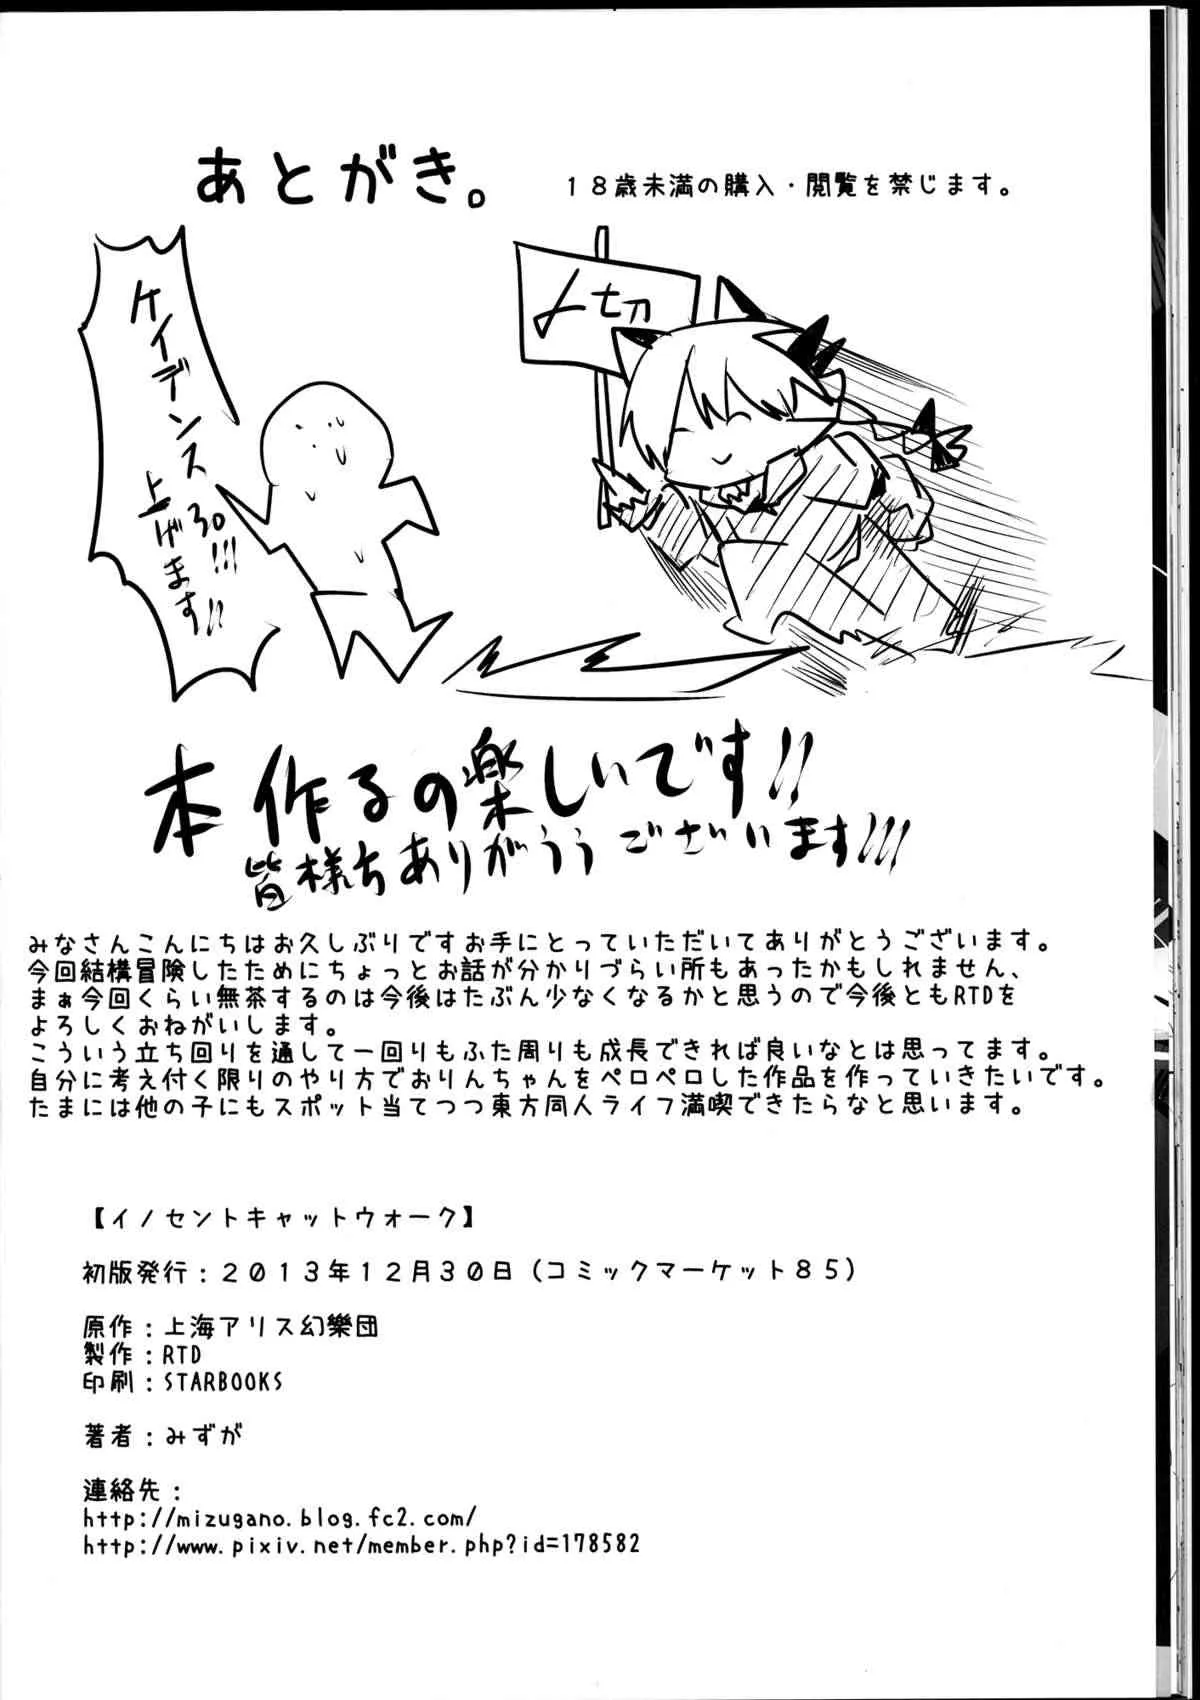 あとがき。
１８歳未満の購入・閲覧を禁じます。
ケイデンス
30!!!
上げます!!
〆切
本作るの楽しいです!!
皆様ちありがううございます!!!
みなさんこんにちはお久しぶりですお手にとっていただいてありがとうございます。
今回結構冒険したためにちょっとお話が分かりづらい所もあったかもしれません、
まぁ今回くらい無茶するのは今後はたぶん少なくなるかと思うので今後ともRTDを
よろしくおねがいします。
こういう立ち回りを通して一回りもふた周りも成長できれば良いなとは思ってます。
自分に考え付く限りのやり方でおりんちゃんをペロペロした作品を作っていきたいです。
たまには他の子にもスポット当てつつ東方同人ライフ満喫できたらなと思います。
【イノセントキャットウォーク】
初版発行：２０１３年１２月３０日（コミックマーケット８５）
原作：上海アリス幻樂団
製作：RTD
印刷：STARBOOKS
著者：みずが
連絡先：
http://mizugano.blog.fc2.com/
http://www.pixiv.net/member.php?id=178582